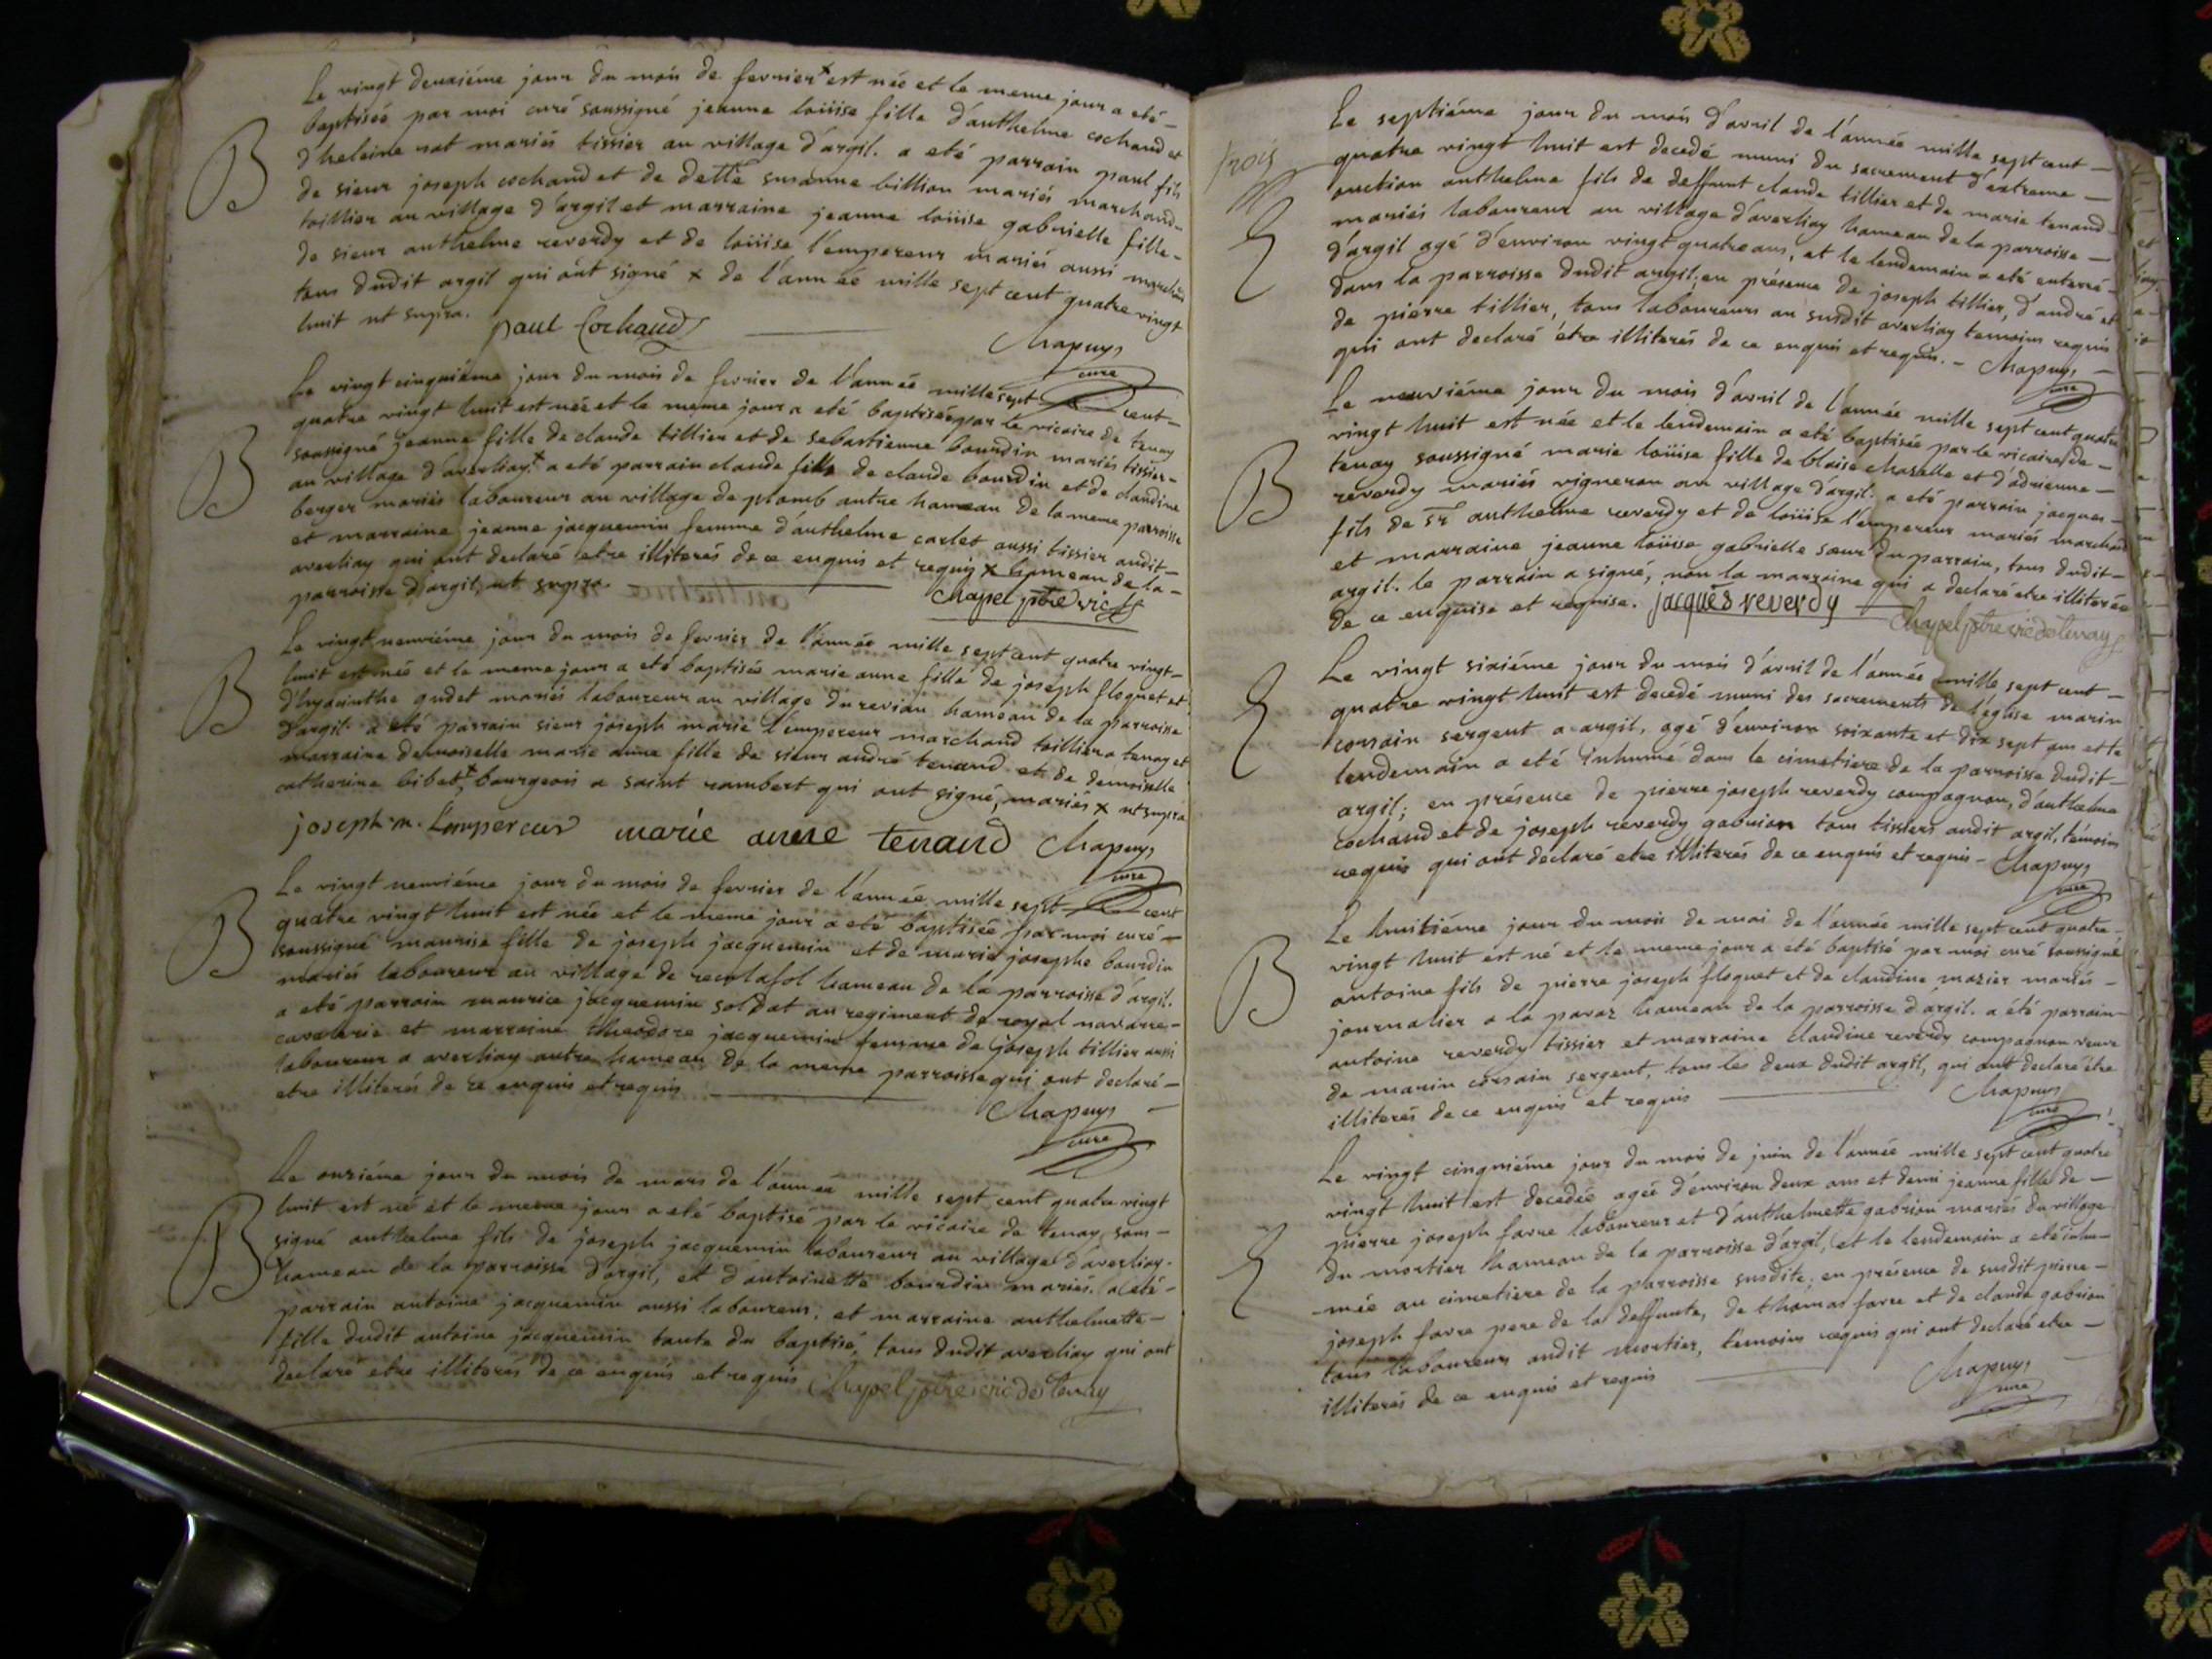 Le vingt deuxiéme jour du mois de fevrier x est née et le meme jour a eté -
baptisée par moi curé soussigné jeanne loüise fille d'anthelme cochand et
B d'heleine nat mariés tissier au village d'argil. a eté parrain paul fils
de sieur joseph cochand et de delle susanne billion mariés marchand -
toillier au village d'argil et marraine jeanne loüise gabrielle fille -
de sieur anthelme reverdy et de loüise l'empereur mariés aussi marchand
tous dudit argil qui ont signé x de l'année mille sept cent quatre vingt
huit ut supra.
paul Cochand
Chapuys
curé
Le vingt cinquiéme jour du mois de fevrier de l'année mille sept cent -
quatre vingt huit est née et le meme jour a eté baptisée par le vicaire de tenay
B soussigné jeanne fille de claude tillier et de sebastienne bourdin mariés tissier -
au village d'averliay x a eté parrain claude fils de claude bourdin et de claudine
berger mariés laboureur au village de plomb autre hameau de la meme parroisse
et marraine jeanne jacquemin femme d'anthelme carlet aussi tissier audit -
averliay qui ont declaré etre illiterés de ce enquis et requis x hameau de la -
parroisse d'argil, ut supra.
Chapel ptre vic
Le vingt neuviéme jour du mois de fevrier de l'année mille sept cent quatre vingt -
huit est née et le meme jour a eté baptisée marie anne fille de joseph floquet et
B d'hyacinthe gudet mariés laboureur au village du revian hameau de la parroisse
d'argil. a eté parrain sieur joseph marie l'empereur marchand toillier a tenay et
marraine demoiselle marie anne fille de sieur andré tenand et de demoiselle
catherine bibet x, bourgeois a saint rambert qui ont signé, mariés x ut supra
joseph m. Lempereur marie anne tenand Chapuys
curé
Le vingt neuviéme jour du mois de fevrier de l'année mille sept cent
quatre vingt huit est née et le meme jour a eté baptisée par moi curé -
B soussigné maurise fille de joseph jacquemin et de marie josephe bourdin
mariés laboureur au village de reculafol hameau de la parroisse d'argil.
a eté parrain maurice jacquemin soldat au regiment de royal navarre -
cavalerie et marraine theodore jacquemin femme de joseph tillier aussi
laboureur a averliay autre hameau de la meme parroisse qui ont declaré -
etre illiterés de ce enquis et requis
Chapuys
curé
Le onziéme jour du mois de mars de l'année mille sept cent quatre vingt
huit est né et le meme jour a eté baptisé par le vicaire de tenay sous -
B signé anthelme fils de joseph jacquemin laboureur au village d'averliay -
hameau de la parroisse d'argil, et d'antoinette bourdin mariés. a eté -
parrain antoine jacquemin aussi laboureur, et marraine anthelmette -
fille dudit antoine jacquemin tante du baptisé, tous dudit averliay qui ont
declaré etre illiterés de ce enquis et requis Chapel ptre vic de tenay
trois
Le septiéme jour du mois d'avril de l'année mille sept cent -
quatre vingt huit est decedé muni du sacrement d'extreme -
onction anthelme fils de deffunt claude tillier et de marie tenand -
mariés laboureur au village d'averliay hameau de la parroisse -
d'argil agé d'environ vingt quatre ans, et le lendemain a eté enterré -
dans la parroisse dudit argil, en présence de joseph tillier, d'andré et
de pierre tillier, tous laboureurs au susdit averliay temoins requis
qui ont declaré être illiterés de ce enquis et requis. - Chapuys -
curé
Le neuviéme jour du mois d'avril de l'année mille sept cent quatre
vingt huit est née et le lendemain a eté baptisée par le vicaire de -
B tenay soussigné marie loüise fille de blaise chaselle et d'adrienne -
reverdy mariés vigneron au village d'argil. a eté parrain jacques -
fils de sr anthelme reverdy et de loüise l'empereur mariés marchand
et marraine jeanne loüise gabrielle sœur du parrain, tous dudit -
argil. le parrain a signé, non la marraine qui a declaré etre illiterée
de ce enquise et requise. jacques reverdy
Chapel ptre vic de tenay
Le vingt sixiéme jour du mois d'avril de l'année mille sept cent -
quatre vingt huit est decedé muni des sacrements de l'eglise marin
corsain sergent a argil, agé d'environ soixante et dix sept ans et le
lendemain a eté inhumé dans le cimetiere de la parroisse dudit -
argil; en présence de pierre joseph reverdy compagnon, d'anthelme
cochand et de joseph reverdy gabrion tous tissiers audit argil, témoins
requis qui ont declaré etre illiterés de ce enquis et requis - Chapuys
curé
Le huitiéme jour du mois de mai de l'année mille sept cent quatre -
vingt huit est né et le meme jour a eté baptisé par moi curé soussigné
B antoine fils de pierre joseph floquet et de claudine mazier mariés -
journalier a la pavaz hameau de la parroisse d'argil. a été parrain
antoine reverdy tissier et marraine claudine reverdy compagnon veuve
de marin corsain sergent, tous les deux dudit argil, qui ont declaré être
illiterés de ce enquis et requis
Chapuys
curé
Le vingt cinquiéme jour du mois de juin de l'année mille sept cent quatre
vingt huit est decedée agée d'environ deux ans et demi jeanne fille de -
pierre joseph favre laboureur et d'anthelmette gabrion mariés du village
du mortier hameau de la parroisse d'argil, et le lendemain a eté inhu -
- mée au cimetiere de la parroisse susdite; en présence de susdit pierre -
joseph favre pere de la deffunte, de thomas favre et de claude gabrion
tous laboureurs audit mortier, temoins requis qui ont declaré etre -
illiterés de ce enquis et requis
Chapuys
curé